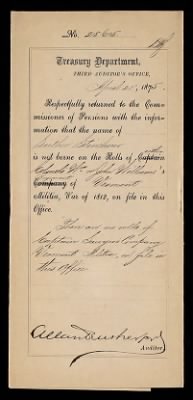 No. 25615
Treasury Department,
THIRD AUDITOR'S OFFICE,
April 21, 1875
Respectfully returned to the Com-
missioner of Pensions with the infor-
mation that the name of
Luther
is not borne on the Rolls of Captain either
John Williams'
Company of Vermont
Militia, War of 1812, on file in this
Office.
There are no rolls of
Captain Sawyers Company
Vermont Militia, on file in
this Office
Allan Rutherford
Auditor.